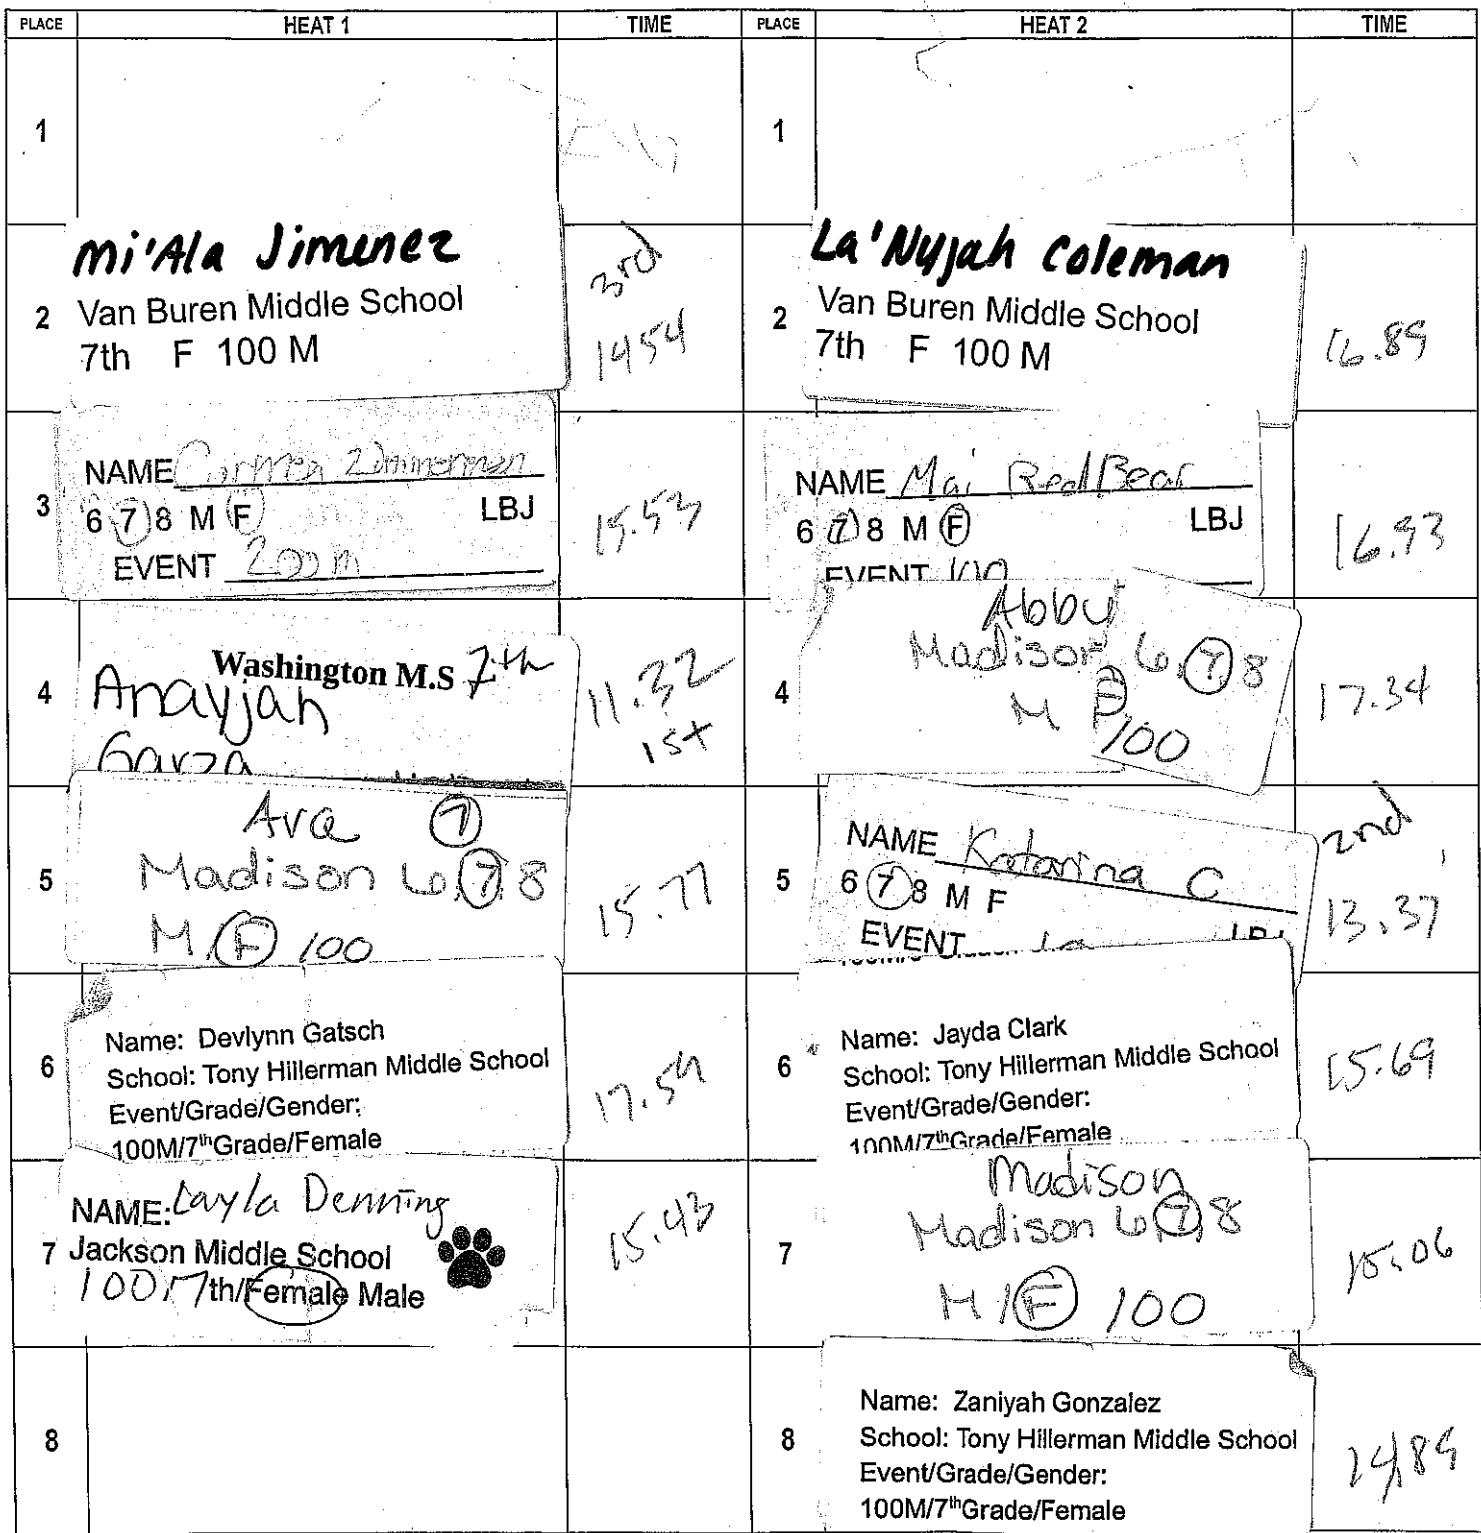 PLACE HEAT 1 TIME PLACE HEAT 2 TIME
1
1
Mi'Ala Jimenez
Van Buren Middle School
2
7th F 100 M
3rd
1454
La'Nyjah Coleman
Van Buren Middle School
2
7th F 100 M
16.89
NAME Carmen Zimmerman
3
6 7 8 M F LBJ
EVENT 200m
15.53
NAME Mai RedBear
6 7 8 M F LBJ
EVENT 100
16.93
Washington M.S 7th
4
Anayjah
Garza
11.32
1st
Abby
Madison 6,7,8
4
M F 100
17.34
Ava 7
Madison 6,7,8
5
M/F 100
15.77
NAME Katarina C
5
6 7 8 M F
EVENT LBJ
2nd
13.37
Name: Devlynn Gatsch
6
School: Tony Hillerman Middle School
Event/Grade/Gender:
100M/7thGrade/Female
17.59
Name: Jayda Clark
6
School: Tony Hillerman Middle School
Event/Grade/Gender:
100M/7thGrade/Female
15.69
NAME: Layla Denning
7
Jackson Middle School
100 7th/Female Male
15.43
Madison
Madison 6,7,8
7
M/F 100
15.06
8
8
Name: Zaniyah Gonzalez
School: Tony Hillerman Middle School
Event/Grade/Gender:
100M/7thGrade/Female
14.89